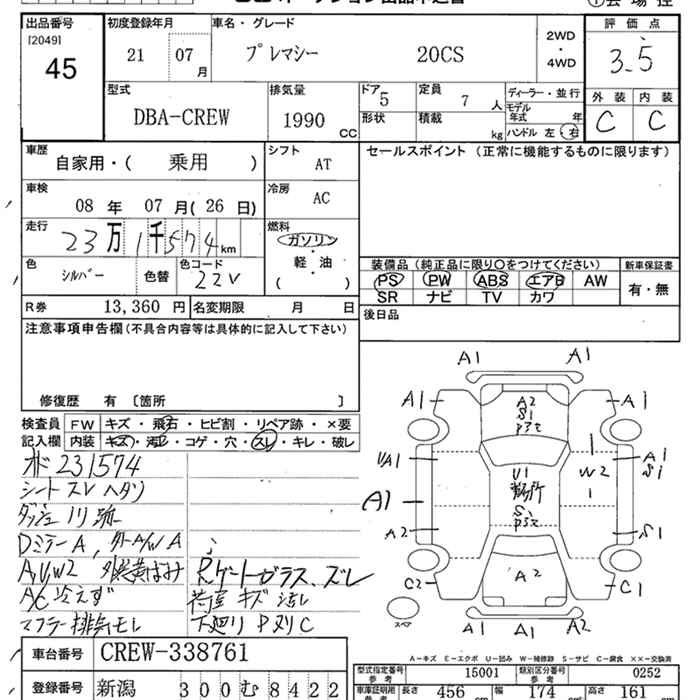 出品番号
[2049]
45
初度登録年月
21 07 月
車名・グレード
プレマシー 20CS
2WD
・
4WD
評価点
3.5
外装 内装
C C
型式
DBA-CREW
排気量
1990 CC
ドア 5
定員 7 人
形状
積載 kg
ディーラー・並行
モデル年式 年
ハンドル 左・右
車歴
自家用・( 乗用 )
シフト
AT
セールスポイント (正常に機能するものに限ります)
車検
08 年 07 月( 26 日)
冷房
AC
走行
23万1千574km
燃料
ガソリン
軽・油
( )
色
シルバー
色替
色コード
22V
装備品 (純正品に限り○をつけてください)
新車保証書
PS PW ABS エアB AW
SR ナビ TV カワ
有・無
R券 13,360 円
名変期限 月 日
後日品
注意事項申告欄(不具合内容等は具体的に記入して下さい)
修復歴 有 〔箇所 〕
検査員
記入欄
FW キズ・飛石・ヒビ割・リペア跡・×要
内装 キズ・汚レ・コゲ・穴・スレ・キレ・破レ
231574
シート スレ ヘタリ
DミラーA
A,U,W2
AC 冷えず
マフラー排気モレ
Rゲートガラス、ズレ
荷室 キズ 汚レ
下廻り PハリC
A1 A1
A1 A1
A2
S1
UA1
U1
W2
A1
S1
A1
A2
S1
C2
A2
C1
A1 A1 A1
スペア
A-キズ E-エクボ U-凹み W-補修跡 S-サビ C-腐食 ××-交換済
車台番号 CREW-338761
型式指定番号 参考 15001
類別区分番号 参考 0252
登録番号 新潟 300 む 8422
車庫証明用 参考
長さ 456 cm 幅 174 cm 高さ 161 cm